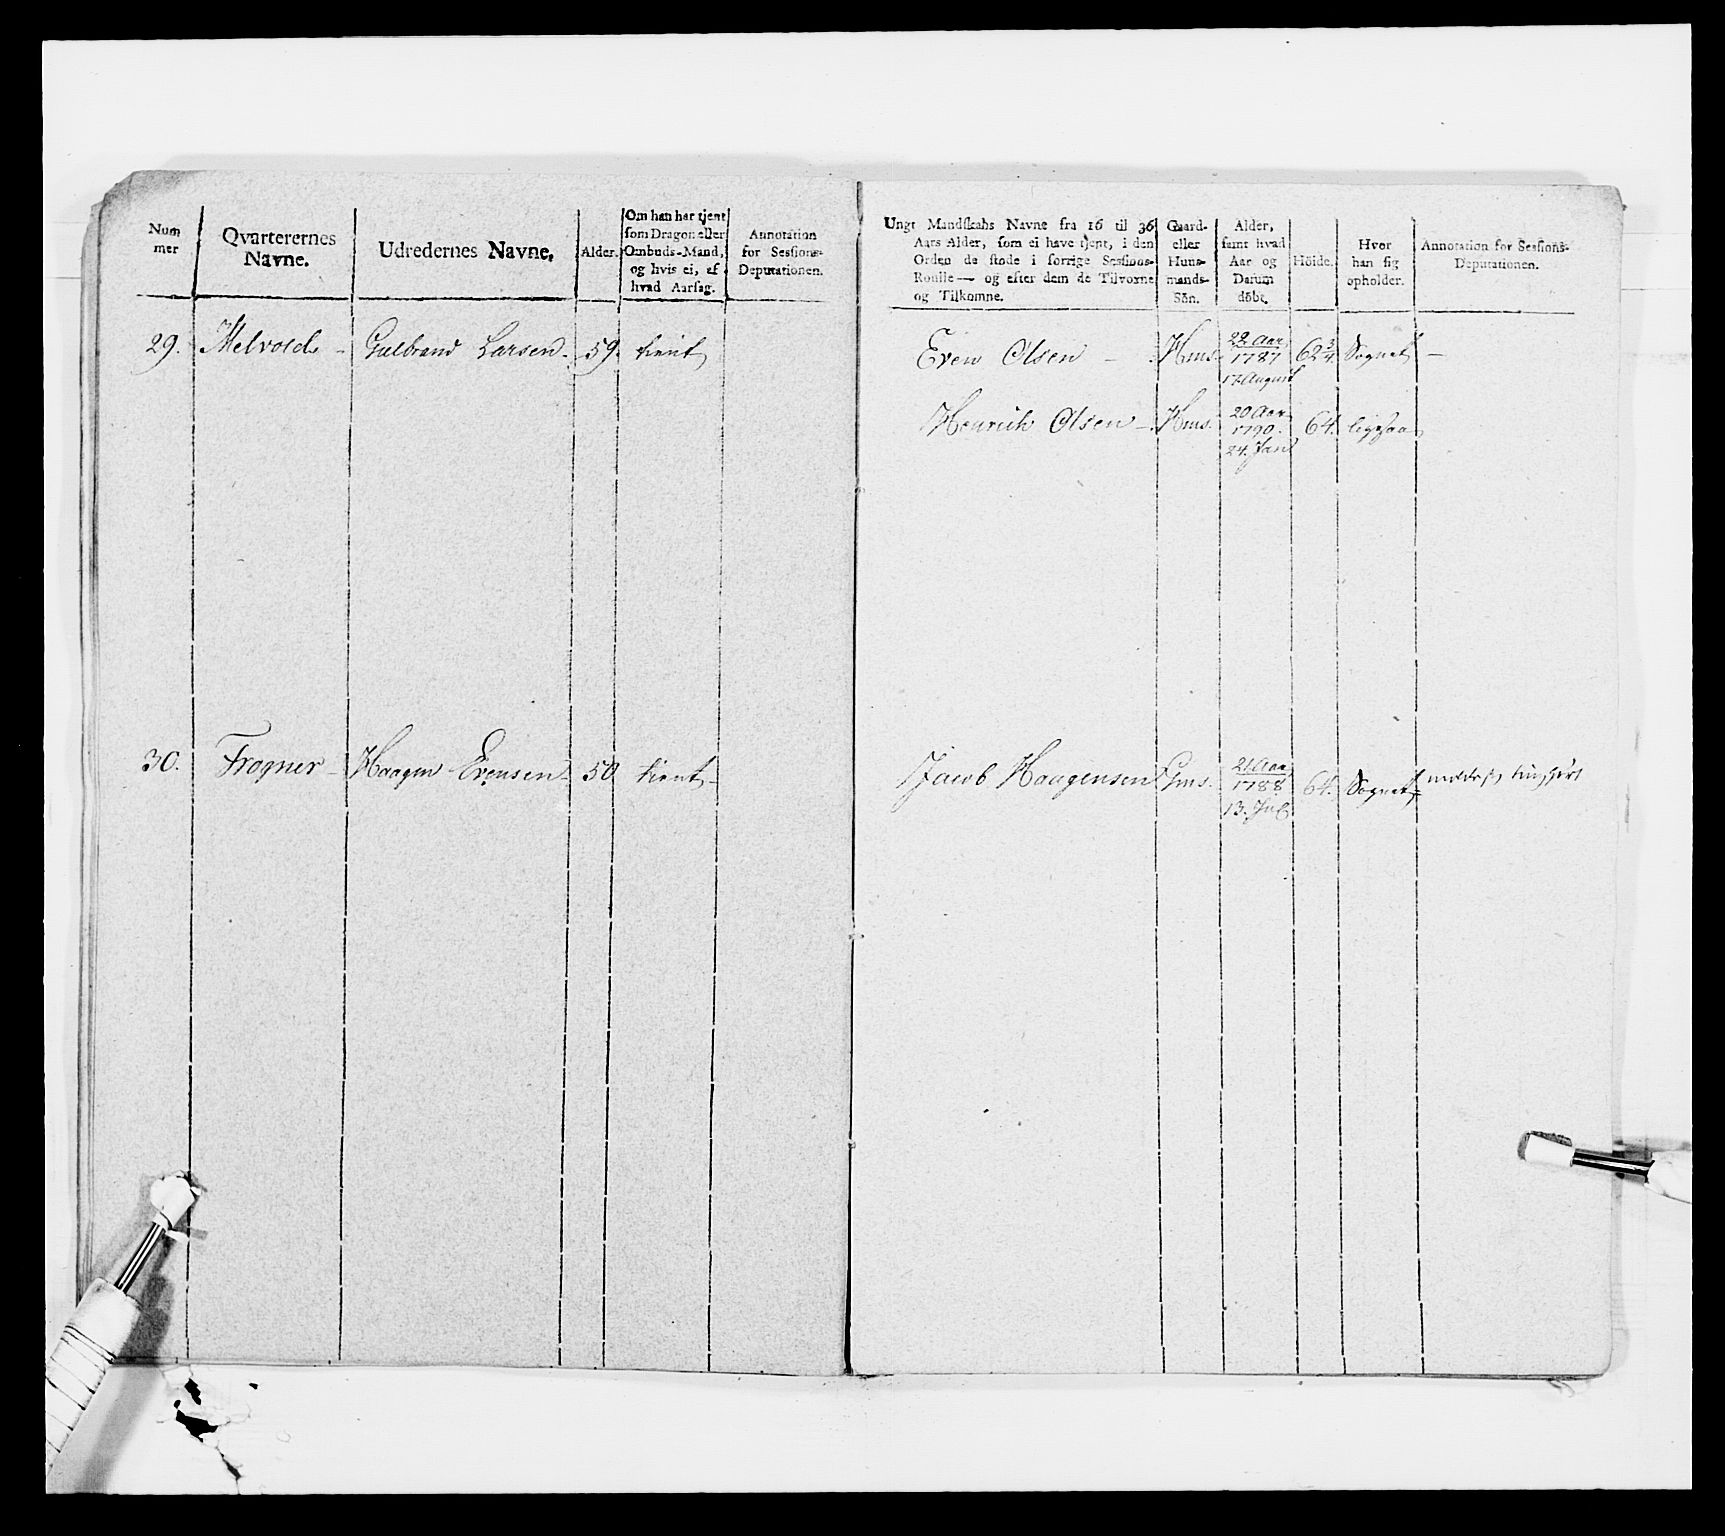 Num
mer
Qvarterernes
Navne.
Udredernes Navne.
Alder.
Om han har tjent
som Dragon eller
Ombuds-Mand,
og hvis ei, af
hvad Aarsag.
Annotation
for Sessions-
Deputationen.
29. Melvold - Gulbrand Larsen. 59. tient
30. Frogner - Haagen Evensen - 50 tient -
Ungt Mandskabs Navne fra 16 til 36
Aars Alder, som ei have tjent, i den
Orden de stode i forrige Sessions-
Roulle — og efter dem de Tilvoxne
og Tilkomne.
Gaard-
eller
Huus-
mands-
Sön.
Alder,
samt hvad
Aar og
Datum
döbt.
Höide.
Hvor
han sig
opholder.
Annotation for Sessions-
Deputationen.
Even Olsen - Hms. 22 Aar 62 3/4 Sognet -
1787
17 August
Henrich Olsen - Hms. 20 Aar 64. ligesaa
1790.
24. Jan
Jacob Haagensen Gms. 21 Aar 64. Sognet
1788
13. Jul